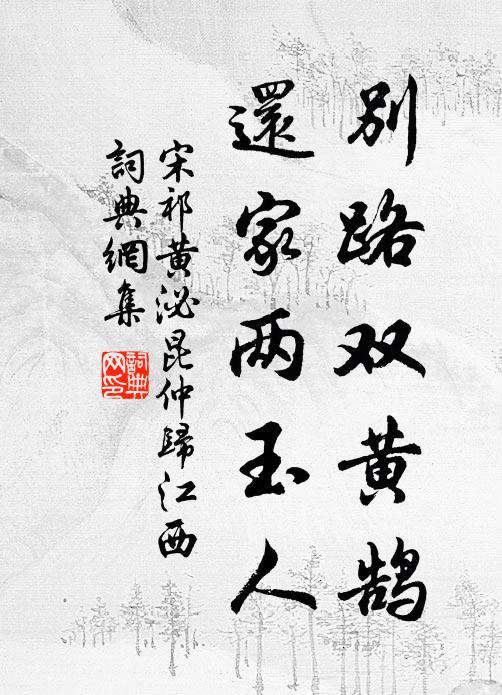 别路双黄鹄
還家两玉人
宋祁黄泌昆仲歸江西
詞典網集
詞典网印